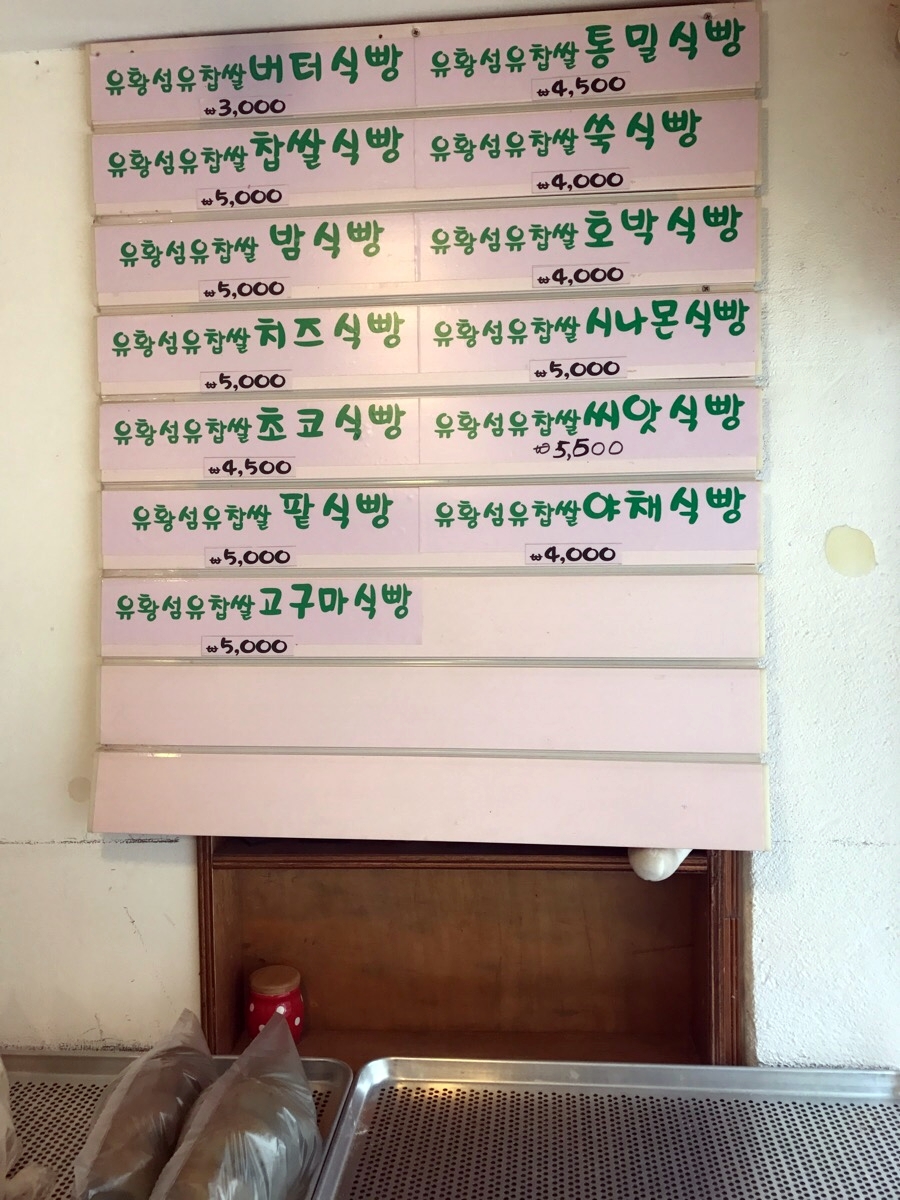 유황섬유찹쌀버터식빵
₩3,000
유황섬유찹쌀통밀식빵
₩4,500
유황섬유찹쌀찹쌀식빵
₩5,000
유황섬유찹쌀쑥식빵
₩4,000
유황섬유찹쌀 밤식빵
₩5,000
유황섬유찹쌀호박식빵
₩4,000
유황섬유찹쌀치즈식빵
₩5,000
유황섬유찹쌀시나몬식빵
₩5,000
유황섬유찹쌀초코식빵
₩4,500
유황섬유찹쌀씨앗식빵
₩5,500
유황섬유찹쌀 팥식빵
₩5,000
유황섬유찹쌀야채식빵
₩4,000
유황섬유찹쌀고구마식빵
₩5,000